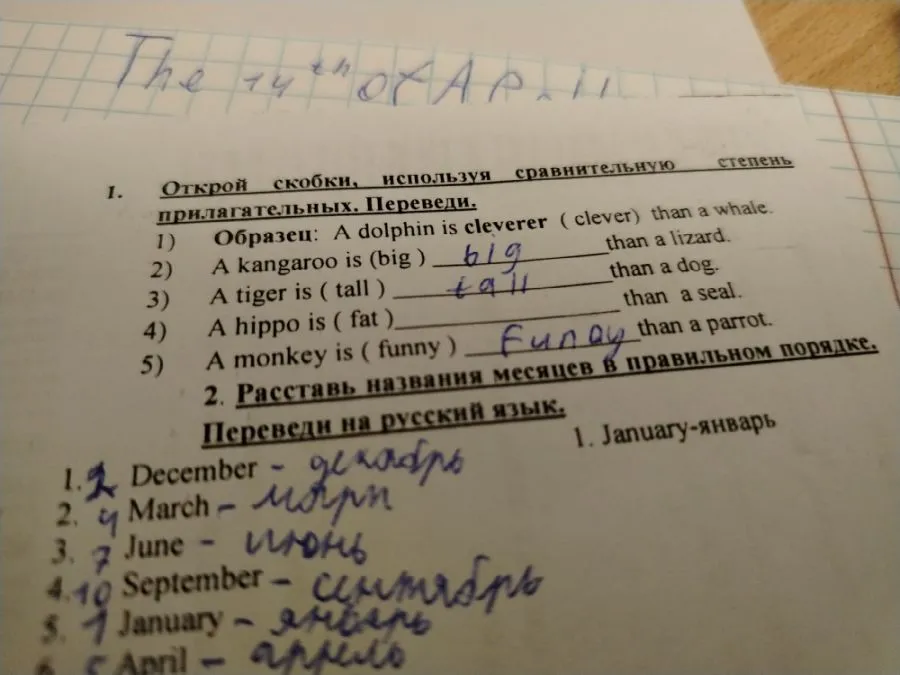 The 14th of Ap
1. Открой скобки, используя сравнительную степень
прилагательных. Переведи.
1) Образец: A dolphin is cleverer ( clever) than a whale.
2) A kangaroo is (big ) big than a lizard.
3) A tiger is ( tall ) tall than a dog.
4) A hippo is ( fat ) than a seal.
5) A monkey is ( funny ) Funay than a parrot.
2. Расставь названия месяцев в правильном порядке.
Переведи на русский язык.
1. January-январь
1. 2 December - декабрь
2. 4 March - март
3. 7 June - июнь
4. 10 September - сентябрь
5. 1 January - январь
6. 5 April - апрель